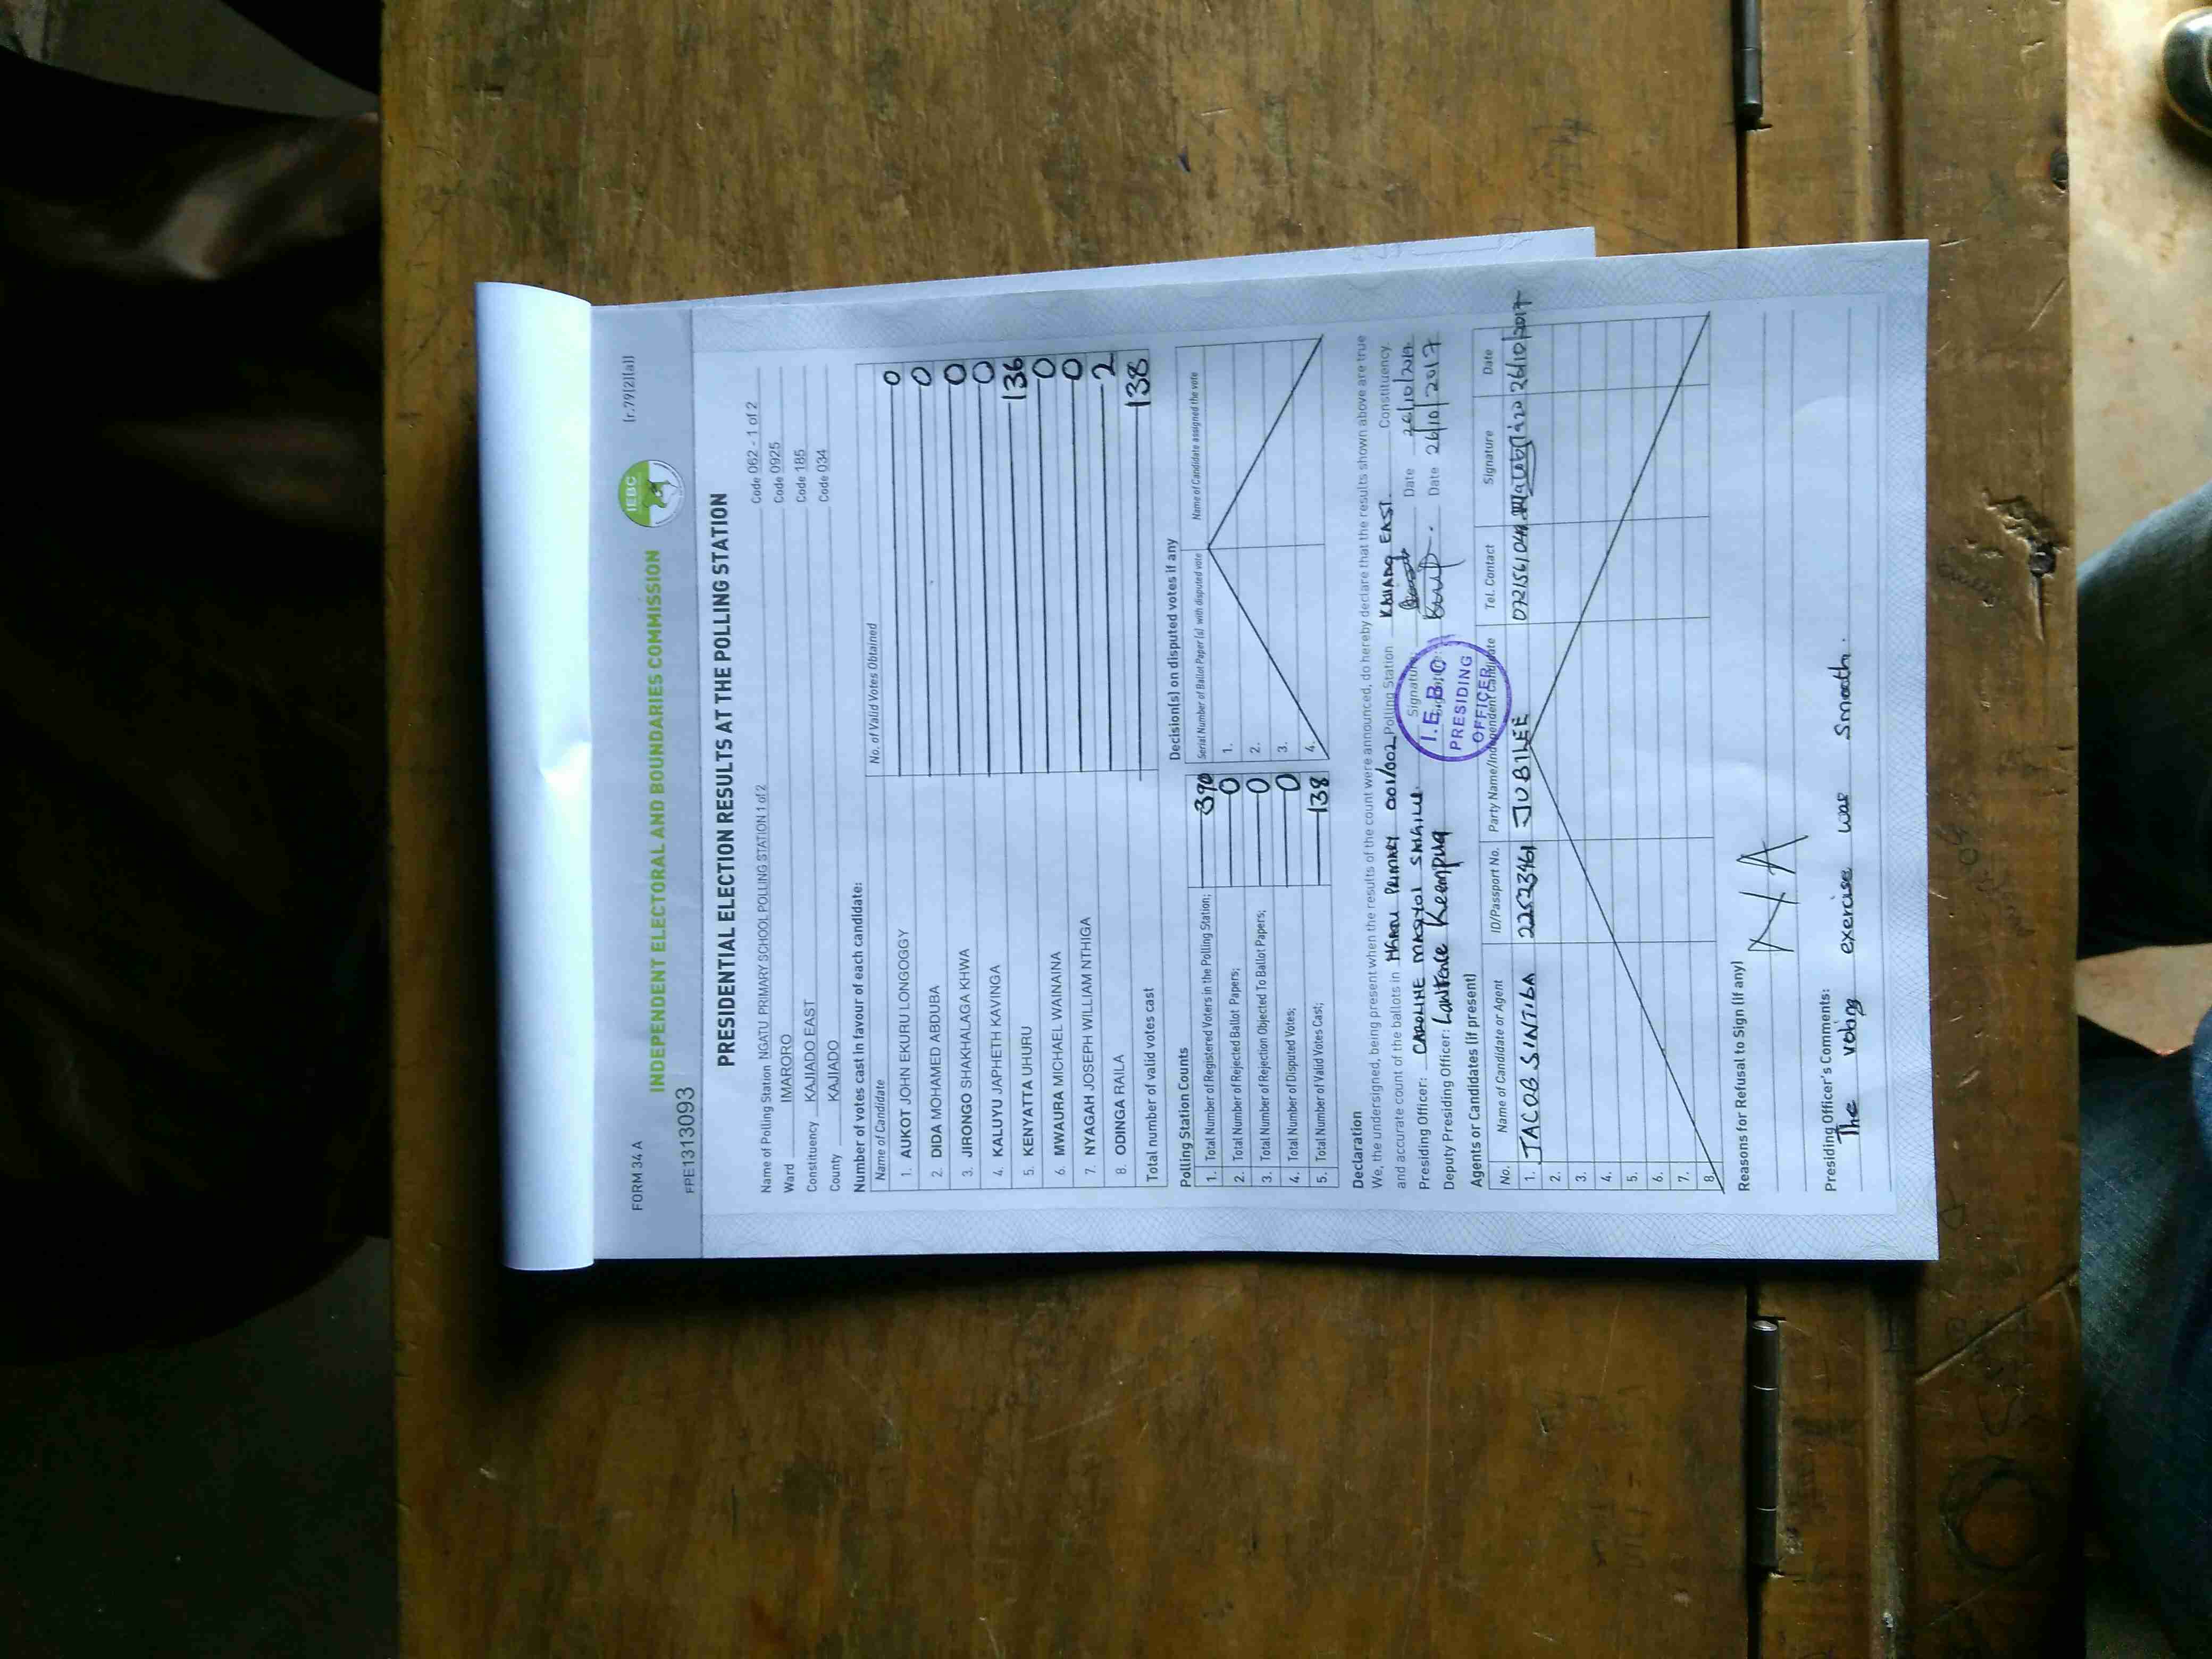 FORM 34 A
INDEPENDENT ELECTORAL AND BOUNDARIES COMMISSION
IEBC
[r.79(2)(a)]
PRESIDENTIAL ELECTION RESULTS AT THE POLLING STATION
Name of Polling Station NGATU PRIMARY SCHOOL POLLING STATION 1 of 2 Code 062 - 1 of 2
Ward IMARORO Code 0925
Constituency KAJIADO EAST Code 185
County KAJIADO Code 034
Number of votes cast in favour of each candidate:
Name of Candidate No. of Valid Votes Obtained
1. AUKOT JOHN EKURU LONGOGGY 0
2. DIDA MOHAMED ABDUBA 0
3. JIRONGO SHAKHALAGA KHWA 0
4. KALUYU JAPHETH KAVINGA 0
5. KENYATTA UHURU 136
6. MWAURA MICHAEL WAINAINA 0
7. NYAGAH JOSEPH WILLIAM NTHIGA 0
8. ODINGA RAILA 2
Total number of valid votes cast 138
Polling Station Counts
1. Total Number of Registered Voters in the Polling Station; 390
2. Total Number of Rejected Ballot Papers; 0
3. Total Number of Rejection Objected To Ballot Papers; 0
4. Total Number of Disputed Votes; 0
5. Total Number of Valid Votes Cast; 138
Decision(s) on disputed votes if any
Serial Number of Ballot Paper (s) with disputed vote Name of Candidate assigned the vote
1.
2.
3.
4.
Declaration
We, the undersigned, being present when the results of the count were announced, do hereby declare that the results shown above are true
and accurate count of the ballots in PRIMARY 001/002 Polling Station KAJIADO EAST. Constituency.
Presiding Officer: CAROLINE Signature: Date 26/10/2017
Deputy Presiding Officer: Lawrence Keempua Date 26/10/2017
I.E.B.C
PRESIDING
OFFICER
Agents or Candidates (if present)
No. Name of Candidate or Agent ID/Passport No. Party Name/Independent Candidate Tel. Contact Signature Date
1. JACOB SINTIBA 22523461 JUBILEE 26/10/2017
2.
3.
4.
5.
6.
7.
8.
Reasons for Refusal to Sign (If any)
N/A
Presiding Officer's Comments:
The voting exercise was smooth.